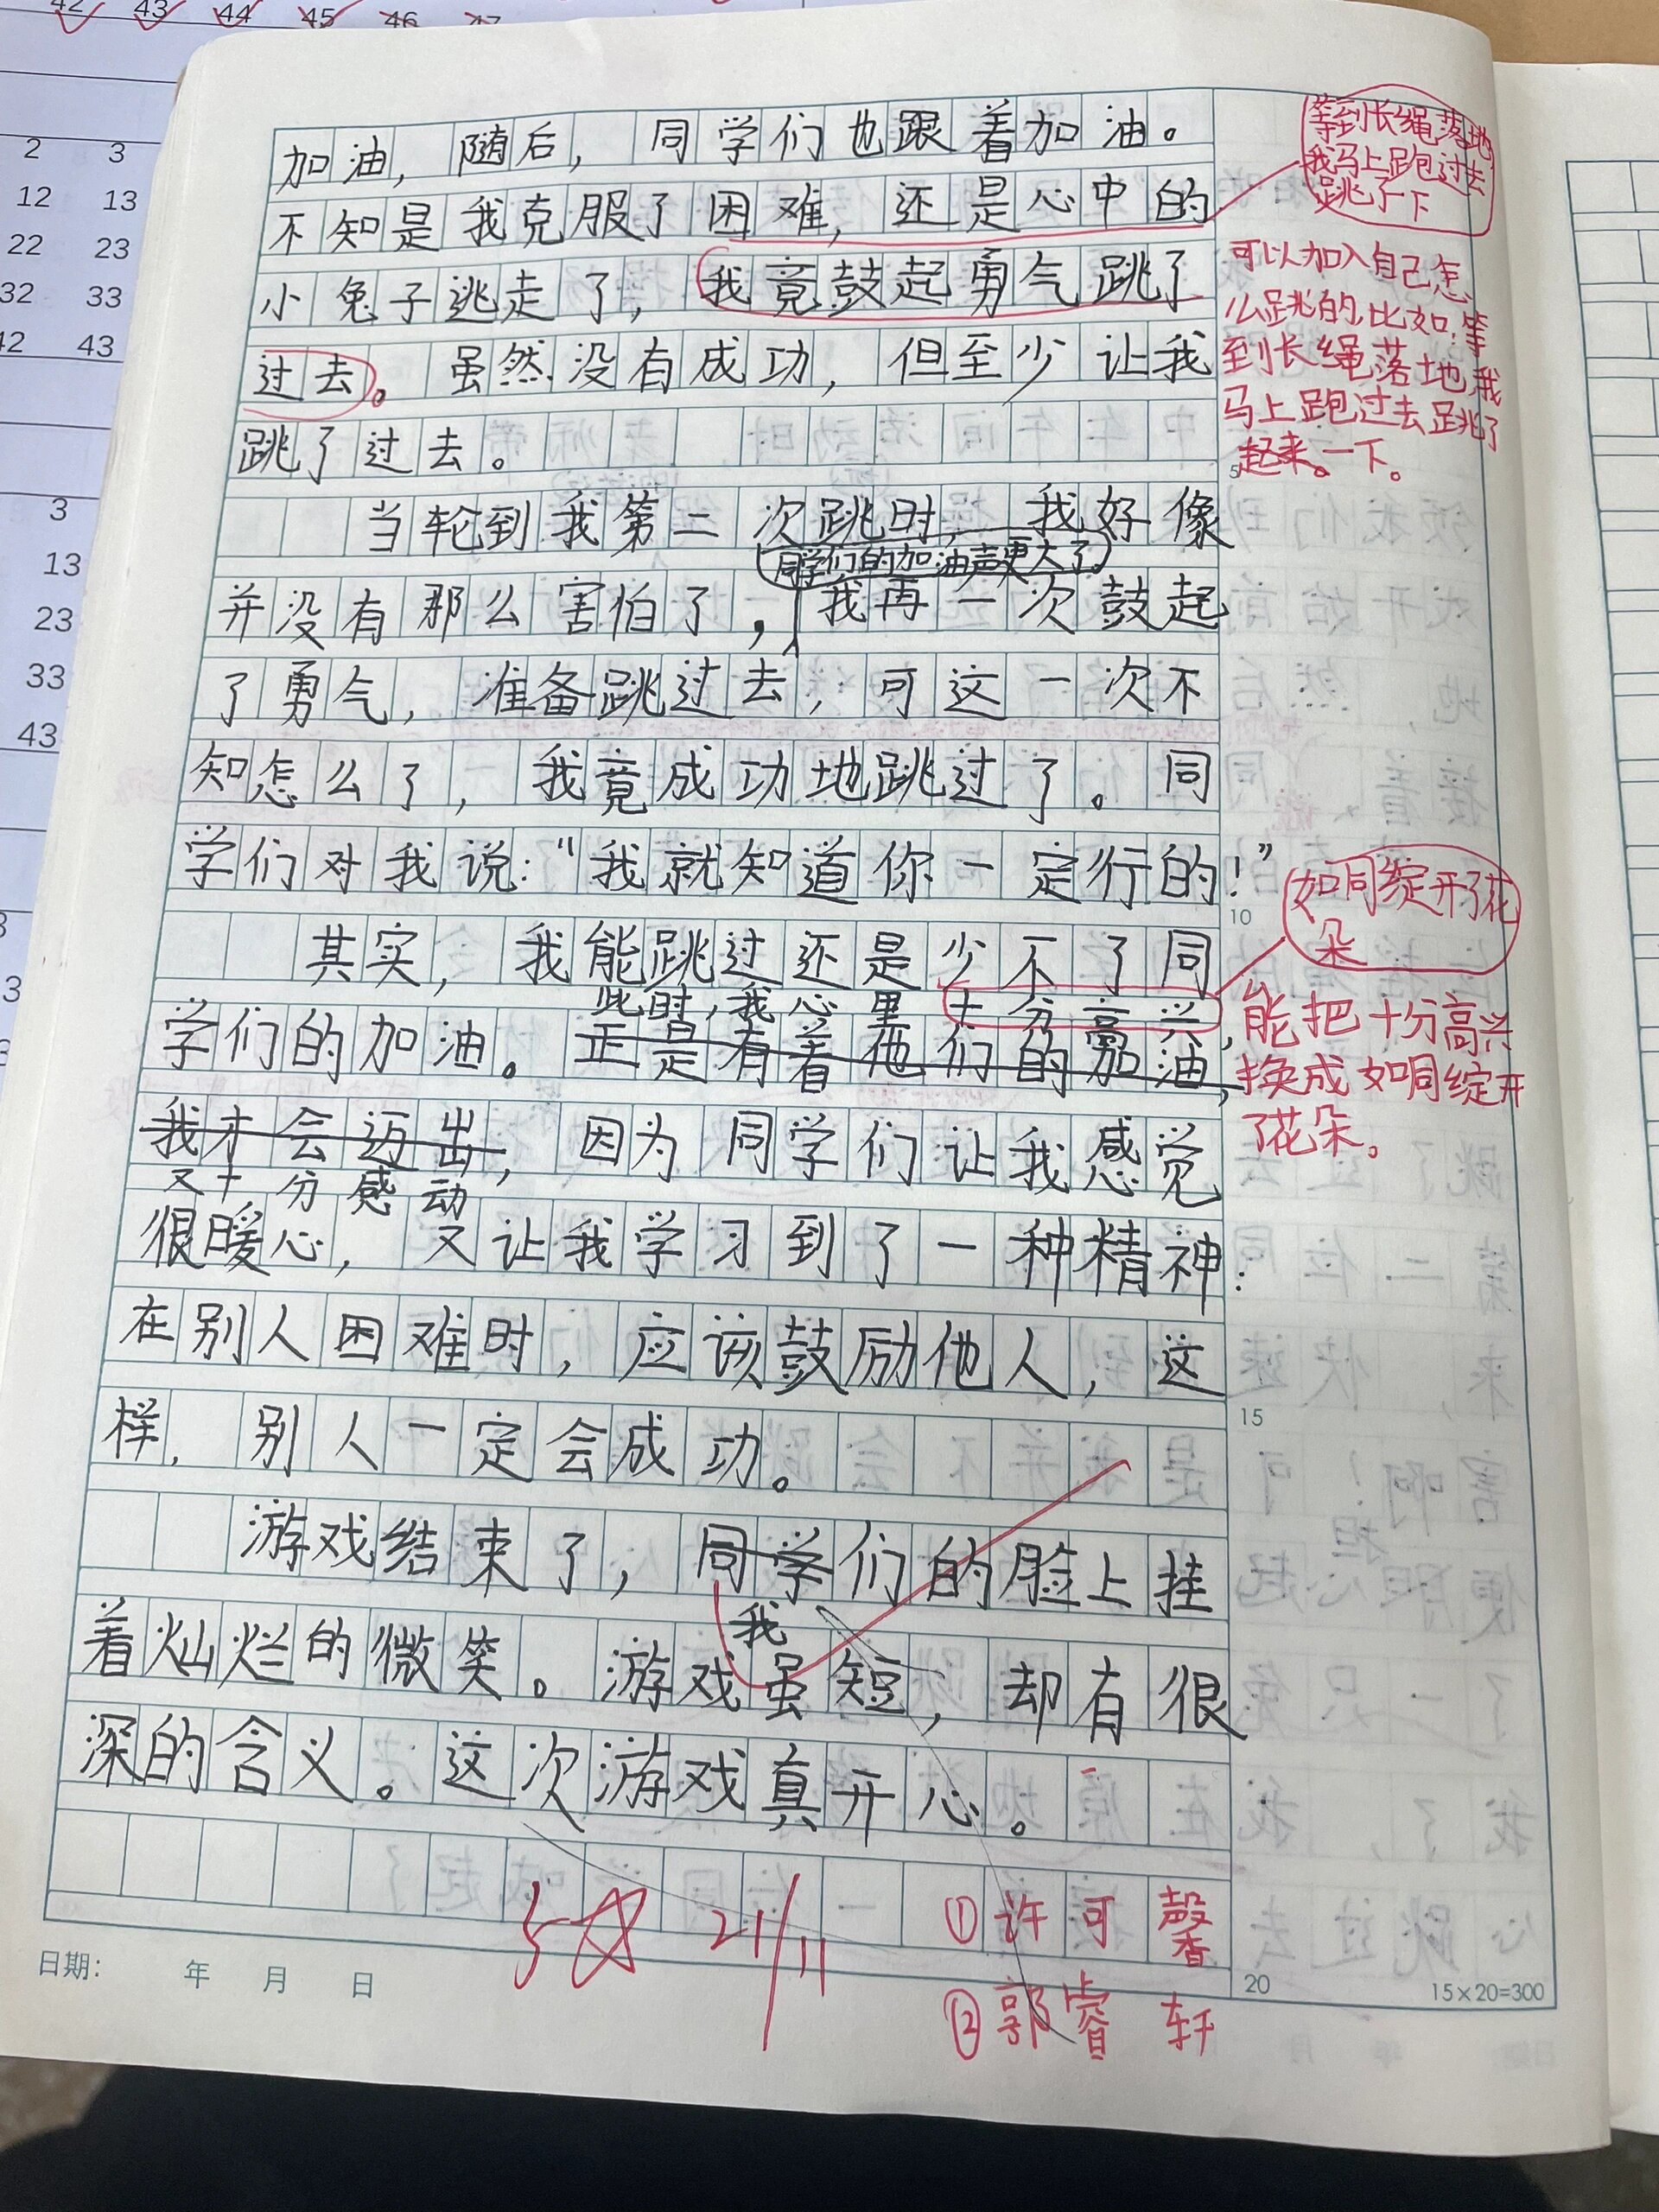 42 43 44 45 46 47
2 3
12 13
22 23
32 33
42 43
3
13
23
33
43
加油，随后，同学们也跟着加油。
不知是我克服了困难，还是心中的
小兔子逃走了，我竟鼓起勇气跳了
过去。虽然没有成功，但至少让我
跳了过去。
当轮到我第二次跳时，我好像
同学们的加油声更大了。
并没有那么害怕了，我再一次鼓起
了勇气，准备跳过去，可这一次不
知怎么了，我竟成功地跳过了。同
学们对我说：“我就知道你一定行的！”
其实，我能跳过还是少不了同
此时，我心里十分高兴，
学们的加油。正是有着他们的加油，
我才会迈出，因为同学们让我感觉
又十分感动
很暖心，又让我学习到了一种精神：
在别人困难时，应该鼓励他人，这
样，别人一定会成功。
游戏结束了，同学们的脸上挂
我
着灿烂的微笑。游戏虽短，却有很
深的含义。这次游戏真开心。
等到长绳落地
我马上跑过去
跳了一下
可以加入自己怎
么跳的，比如：等
到长绳落地，我
马上跑过去跳了
起来。一下。
5
10
如同绽开了花
朵
能把十分高兴
换成如同绽开
了花朵。
15
5☆ 21/11
①许可馨
②郭睿轩
日期： 年 月 日
20
15×20=300